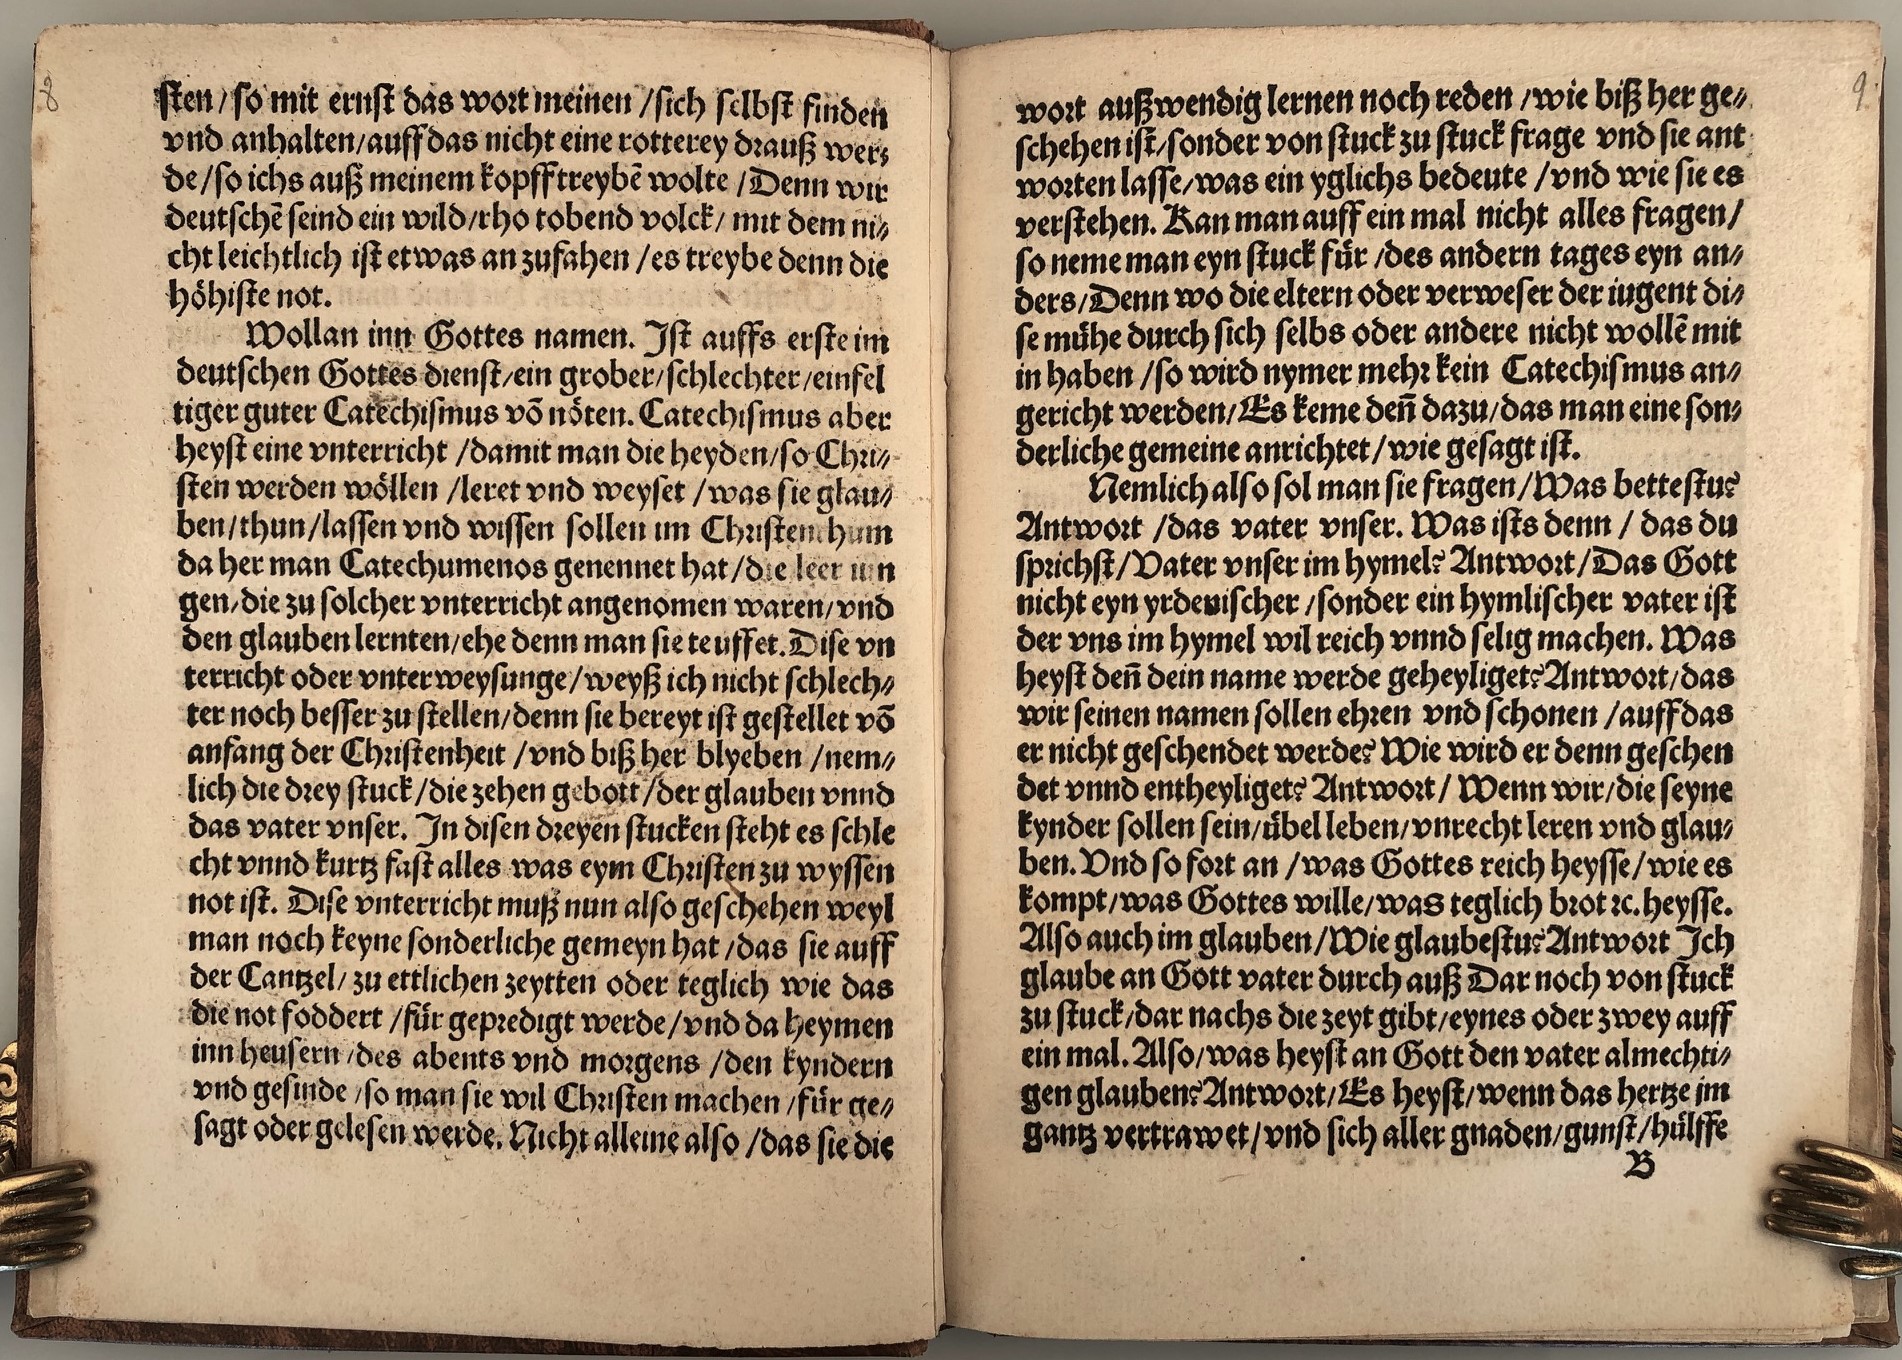 8
sten / so mit ernst das wort meinen / sich selbst finden
vnd anhalten / auff das nicht eine rotterey drauß wer⸗
de / so ichs auß meinem kopff treybē wolte / Denn wir
deutschē seind ein wild / rho tobend volck / mit dem ni⸗
cht leichtlich ist etwas an zufahen / es treybe denn die
höhiste not.
Wollan inn Gottes namen. Ist auffs erste im
deutschen Gottes dienst / ein grober / schlechter / einfel
tiger guter Catechismus vō nöten. Catechismus aber
heyst eine vnterricht / damit man die heyden / so Chri⸗
sten werden wöllen / leret vnd weyset / was sie glau⸗
ben / thun / lassen vnd wissen sollen im Christenthum
da her man Catechumenos genennet hat / die leer iun
gen / die zu solcher vnterricht angenomen waren / vnd
den glauben lernten / ehe denn man sie teuffet. Dise vn
terricht oder vnterweysunge / weyß ich nicht schlech⸗
ter noch besser zu stellen / denn sie bereyt ist gestellet vō
anfang der Christenheit / vnd biß her blyeben / nem⸗
lich die drey stuck / die zehen gebott / der glauben vnnd
das vater vnser. In disen dreyen stucken steht es schle
cht vnnd kurtz fast alles was eym Christen zu wyssen
not ist. Dise vnterricht muß nun also geschehen weyl
man noch keyne sonderliche gemeyn hat / das sie auff
der Cantzel / zu ettlichen zeytten oder teglich wie das
die not foddert / für gepredigt werde / vnd da heymen
inn heusern / des abents vnd morgens / den kyndern
vnd gesinde / so man sie wil Christen machen / für ge⸗
sagt oder gelesen werde. Nicht alleine also / das sie die
9
wort außwendig lernen noch reden / wie biß her ge⸗
schehen ist / sonder von stuck zu stuck frage vnd sie ant
worten lasse / was ein yglichs bedeute / vnd wie sie es
verstehen. Kan man auff ein mal nicht alles fragen /
so neme man eyn stuck für / des andern tages eyn an⸗
ders / Denn wo die eltern oder verweser der iugent di⸗
se mühe durch sich selbs oder andere nicht wollē mit
in haben / so wird nymer mehr kein Catechismus an⸗
gericht werden / Es keme deñ dazu / das man eine son⸗
derliche gemeine anrichtet / wie gesagt ist.
Nemlich also sol man sie fragen / Was bettestu?
Antwort / das vater vnser. Was ists denn / das du
sprichst / Vater vnser im hymel? Antwort / Das Gott
nicht eyn yrdenischer / sonder ein hymlischer vater ist
der vns im hymel wil reich vnnd selig machen. Was
heyst deñ dein name werde geheyliget? Antwort / das
wir seinen namen sollen ehren vnd schonen / auff das
er nicht geschendet werde? Wie wird er denn geschen
det vnnd entheyliget? Antwort / Wenn wir / die seyne
kynder sollen sein / übel leben / vnrecht leren vnd glau⸗
ben. Vnd so fort an / was Gottes reich heysse / wie es
kompt / was Gottes wille / was teglich brot ꝛc. heysse.
Also auch im glauben / Wie glaubestu? Antwort Ich
glaube an Gott vater durch auß Dar noch von stuck
zu stuck / dar nachs die zeyt gibt / eynes oder zwey auff
ein mal. Also / was heyst an Gott den vater almechti⸗
gen glauben? Antwort / Es heyst / wenn das hertze jm
gantz vertrawet / vnd sich aller gnaden / gunst / hülffe
B